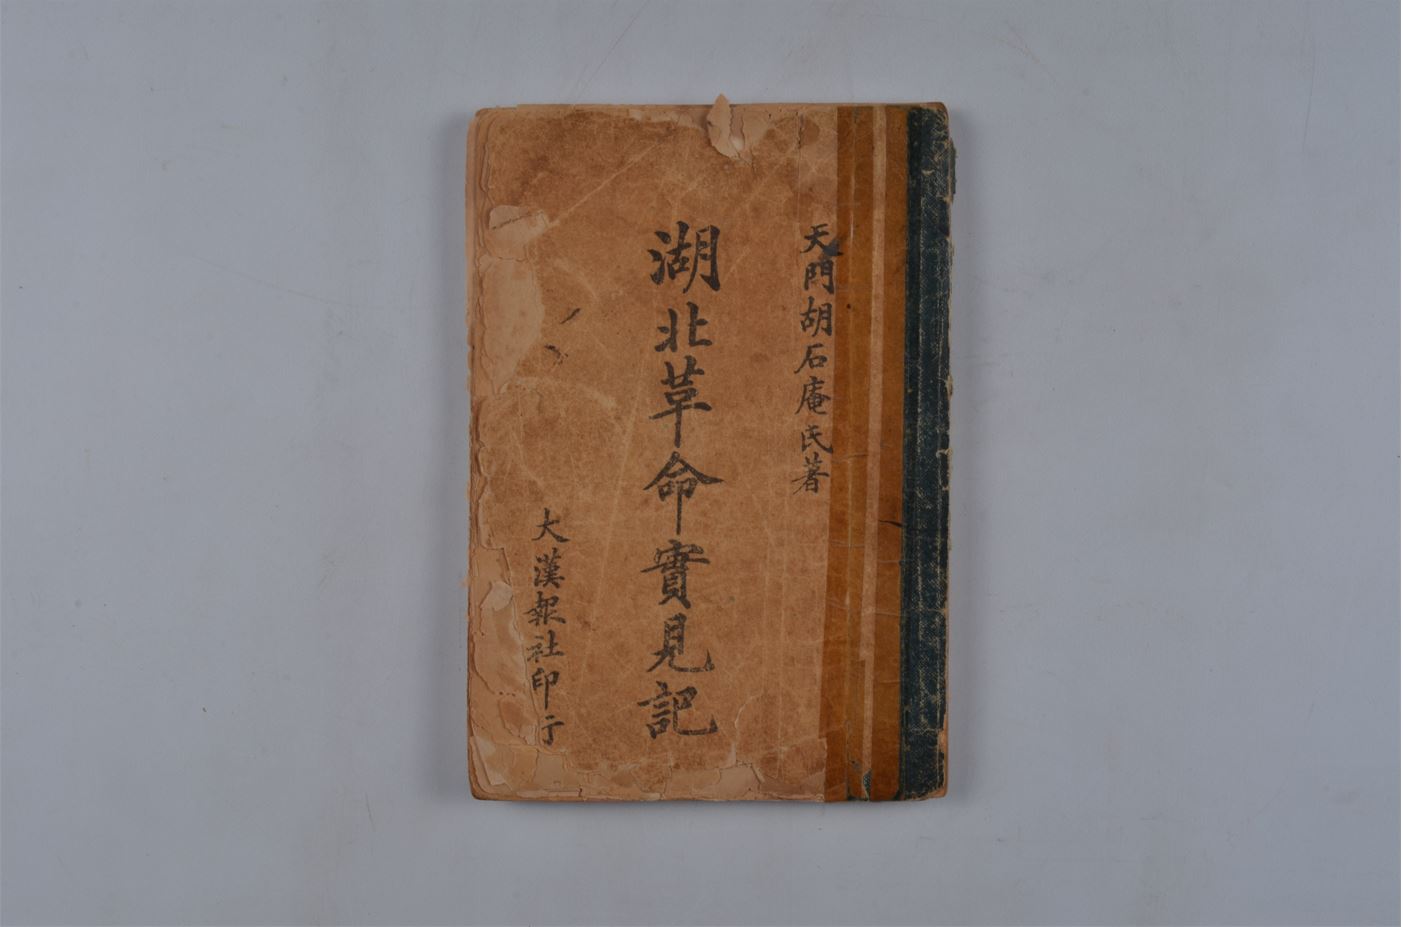 天門胡石庵氏著
湖北革命實見記
大漢報社印行